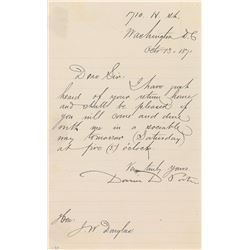 1710. H. St.
Washington D.C
Oct 13. 187.
Dear Sir.
I have just
heard of your return home
and shall be pleased if
you will come and dine
with me in a sociable
way tomorrow (Saturday)
at five (5) o'clock
Very truly yours.
David D. Porter
Hon.
J W Douglas